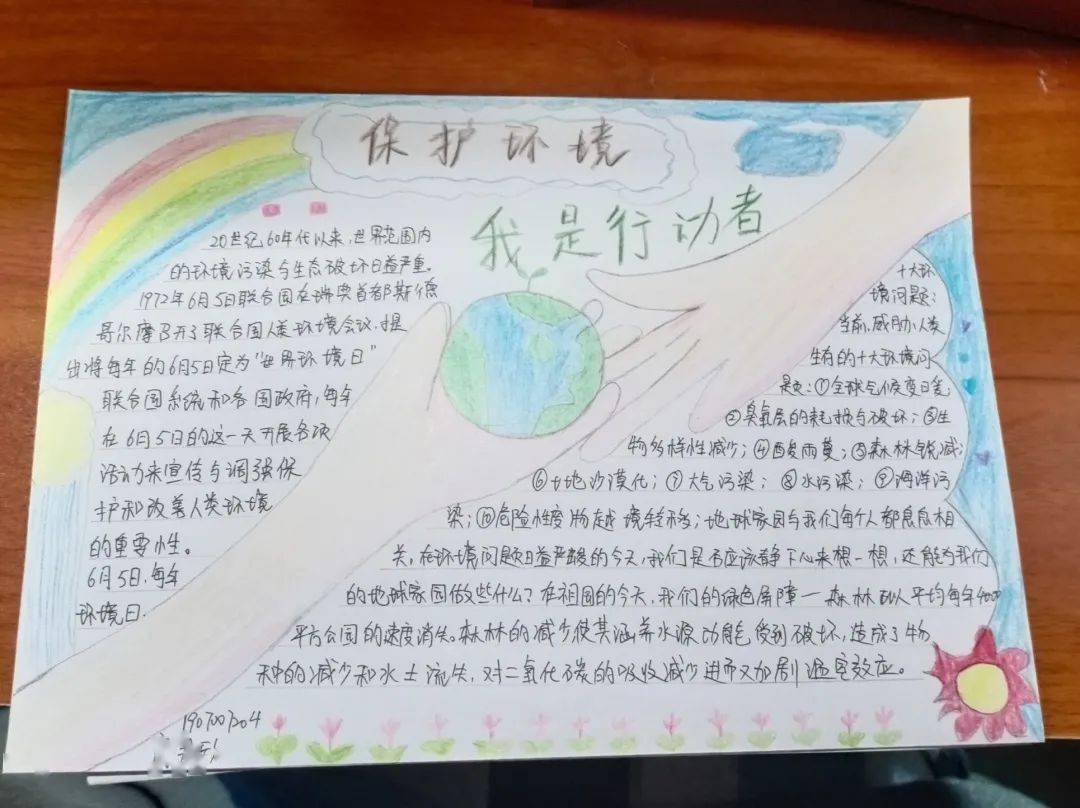 保护环境
我是行动者
20世纪60年代以来,世界范围内
的环境污染与生态破坏日益严重。
1972年6月5日联合国在瑞典首都斯德
哥尔摩召开了联合国人类环境会议,提
出将每年的6月5日定为"世界环境日"
联合国系统和各国政府,每年
在6月5日的这一天开展各项
活动力来宣传与调强保
护和改善人类环境
的重要性。
6月5日,每年
环境日.
十大环
境问题:
当前,威胁人类
生存的十大环境问
题:①全球气候变日
②臭氧层的耗损与破坏;③生
物多样性减少;④酸雨蔓;⑤森林锐减;
⑥土地沙漠化;⑦大气污染;⑧水污染;⑨海洋污
染;⑩危险性废物越境转移;地球家园与我们每个人都息息相
关,在环境问题日益严酸的今天,我们是否应该静下心来想一想,还能为我们
的地球家园做些什么?在祖国的今天,我们的绿色屏障一森林以平均每年4000
平方公园的速度消失。森林的减少使其涵养水源功能受到破坏,造成了物
种的减少和水土流失,对二氧化碳的吸收减少进而又加剧温室效应。